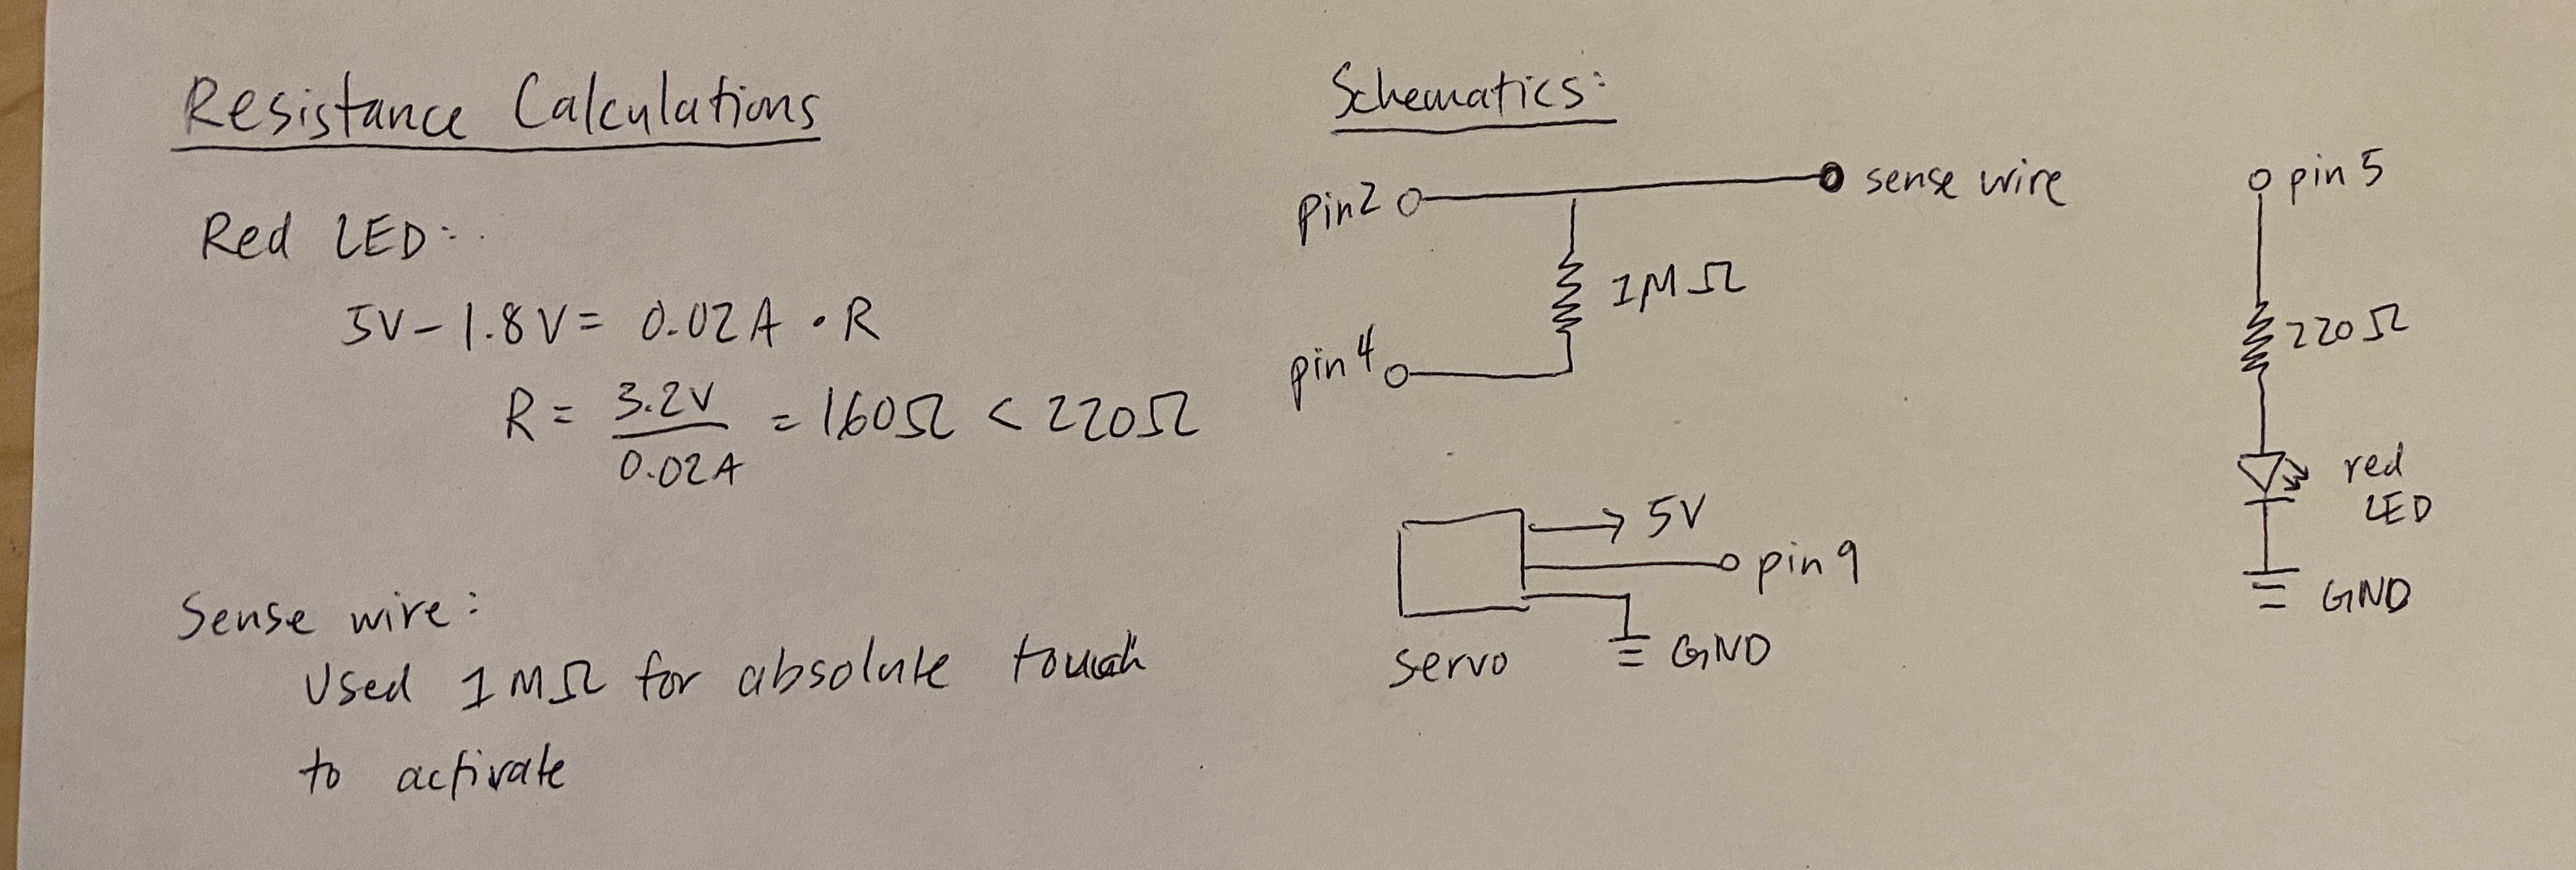 Resistance Calculations
Red LED:
5V - 1.8V = 0.02A · R
R = 3.2V / 0.02A = 160Ω < 220Ω
Sense wire:
Used 1MΩ for absolute touch
to activate
Schematics:
pin2
sense wire
1MΩ
pin 4
5V
pin 9
GND
servo
pin 5
220Ω
red
LED
GND